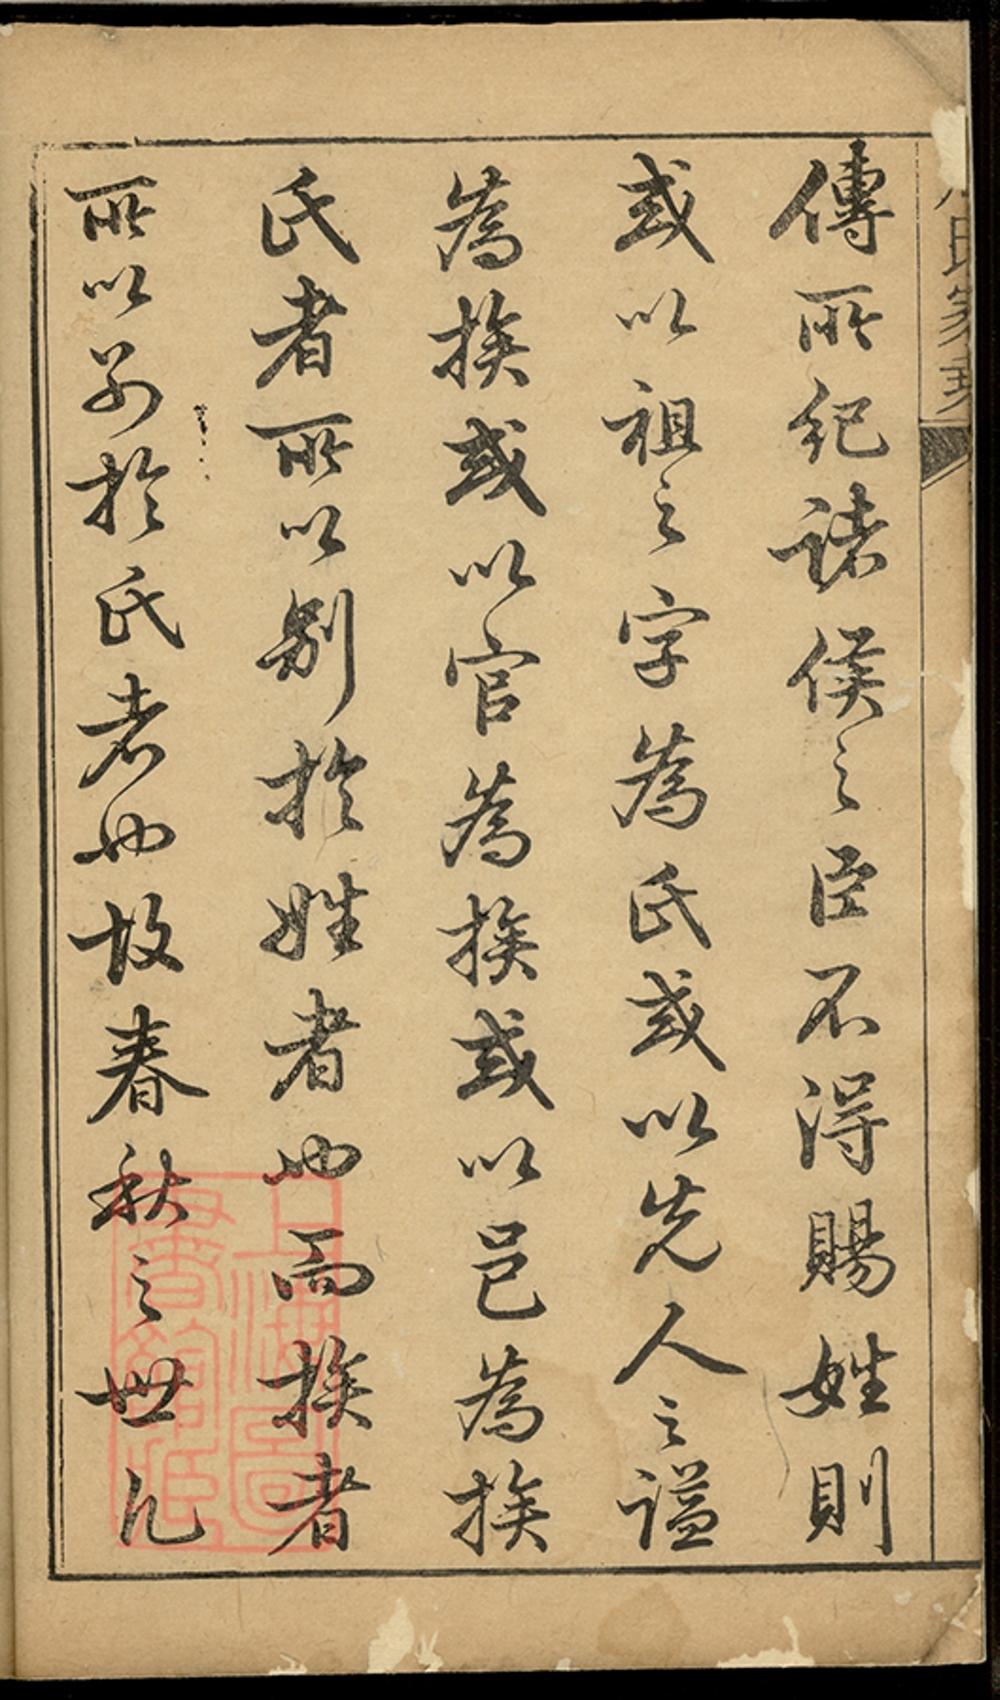 傳所紀諸侯之臣不得賜姓則
或以祖之字為氏或以先人之謚
為族或以官為族或以邑為族
氏者所以別於姓者也而族者
所以別於氏者也故春秋之世凡
上海圖書館藏